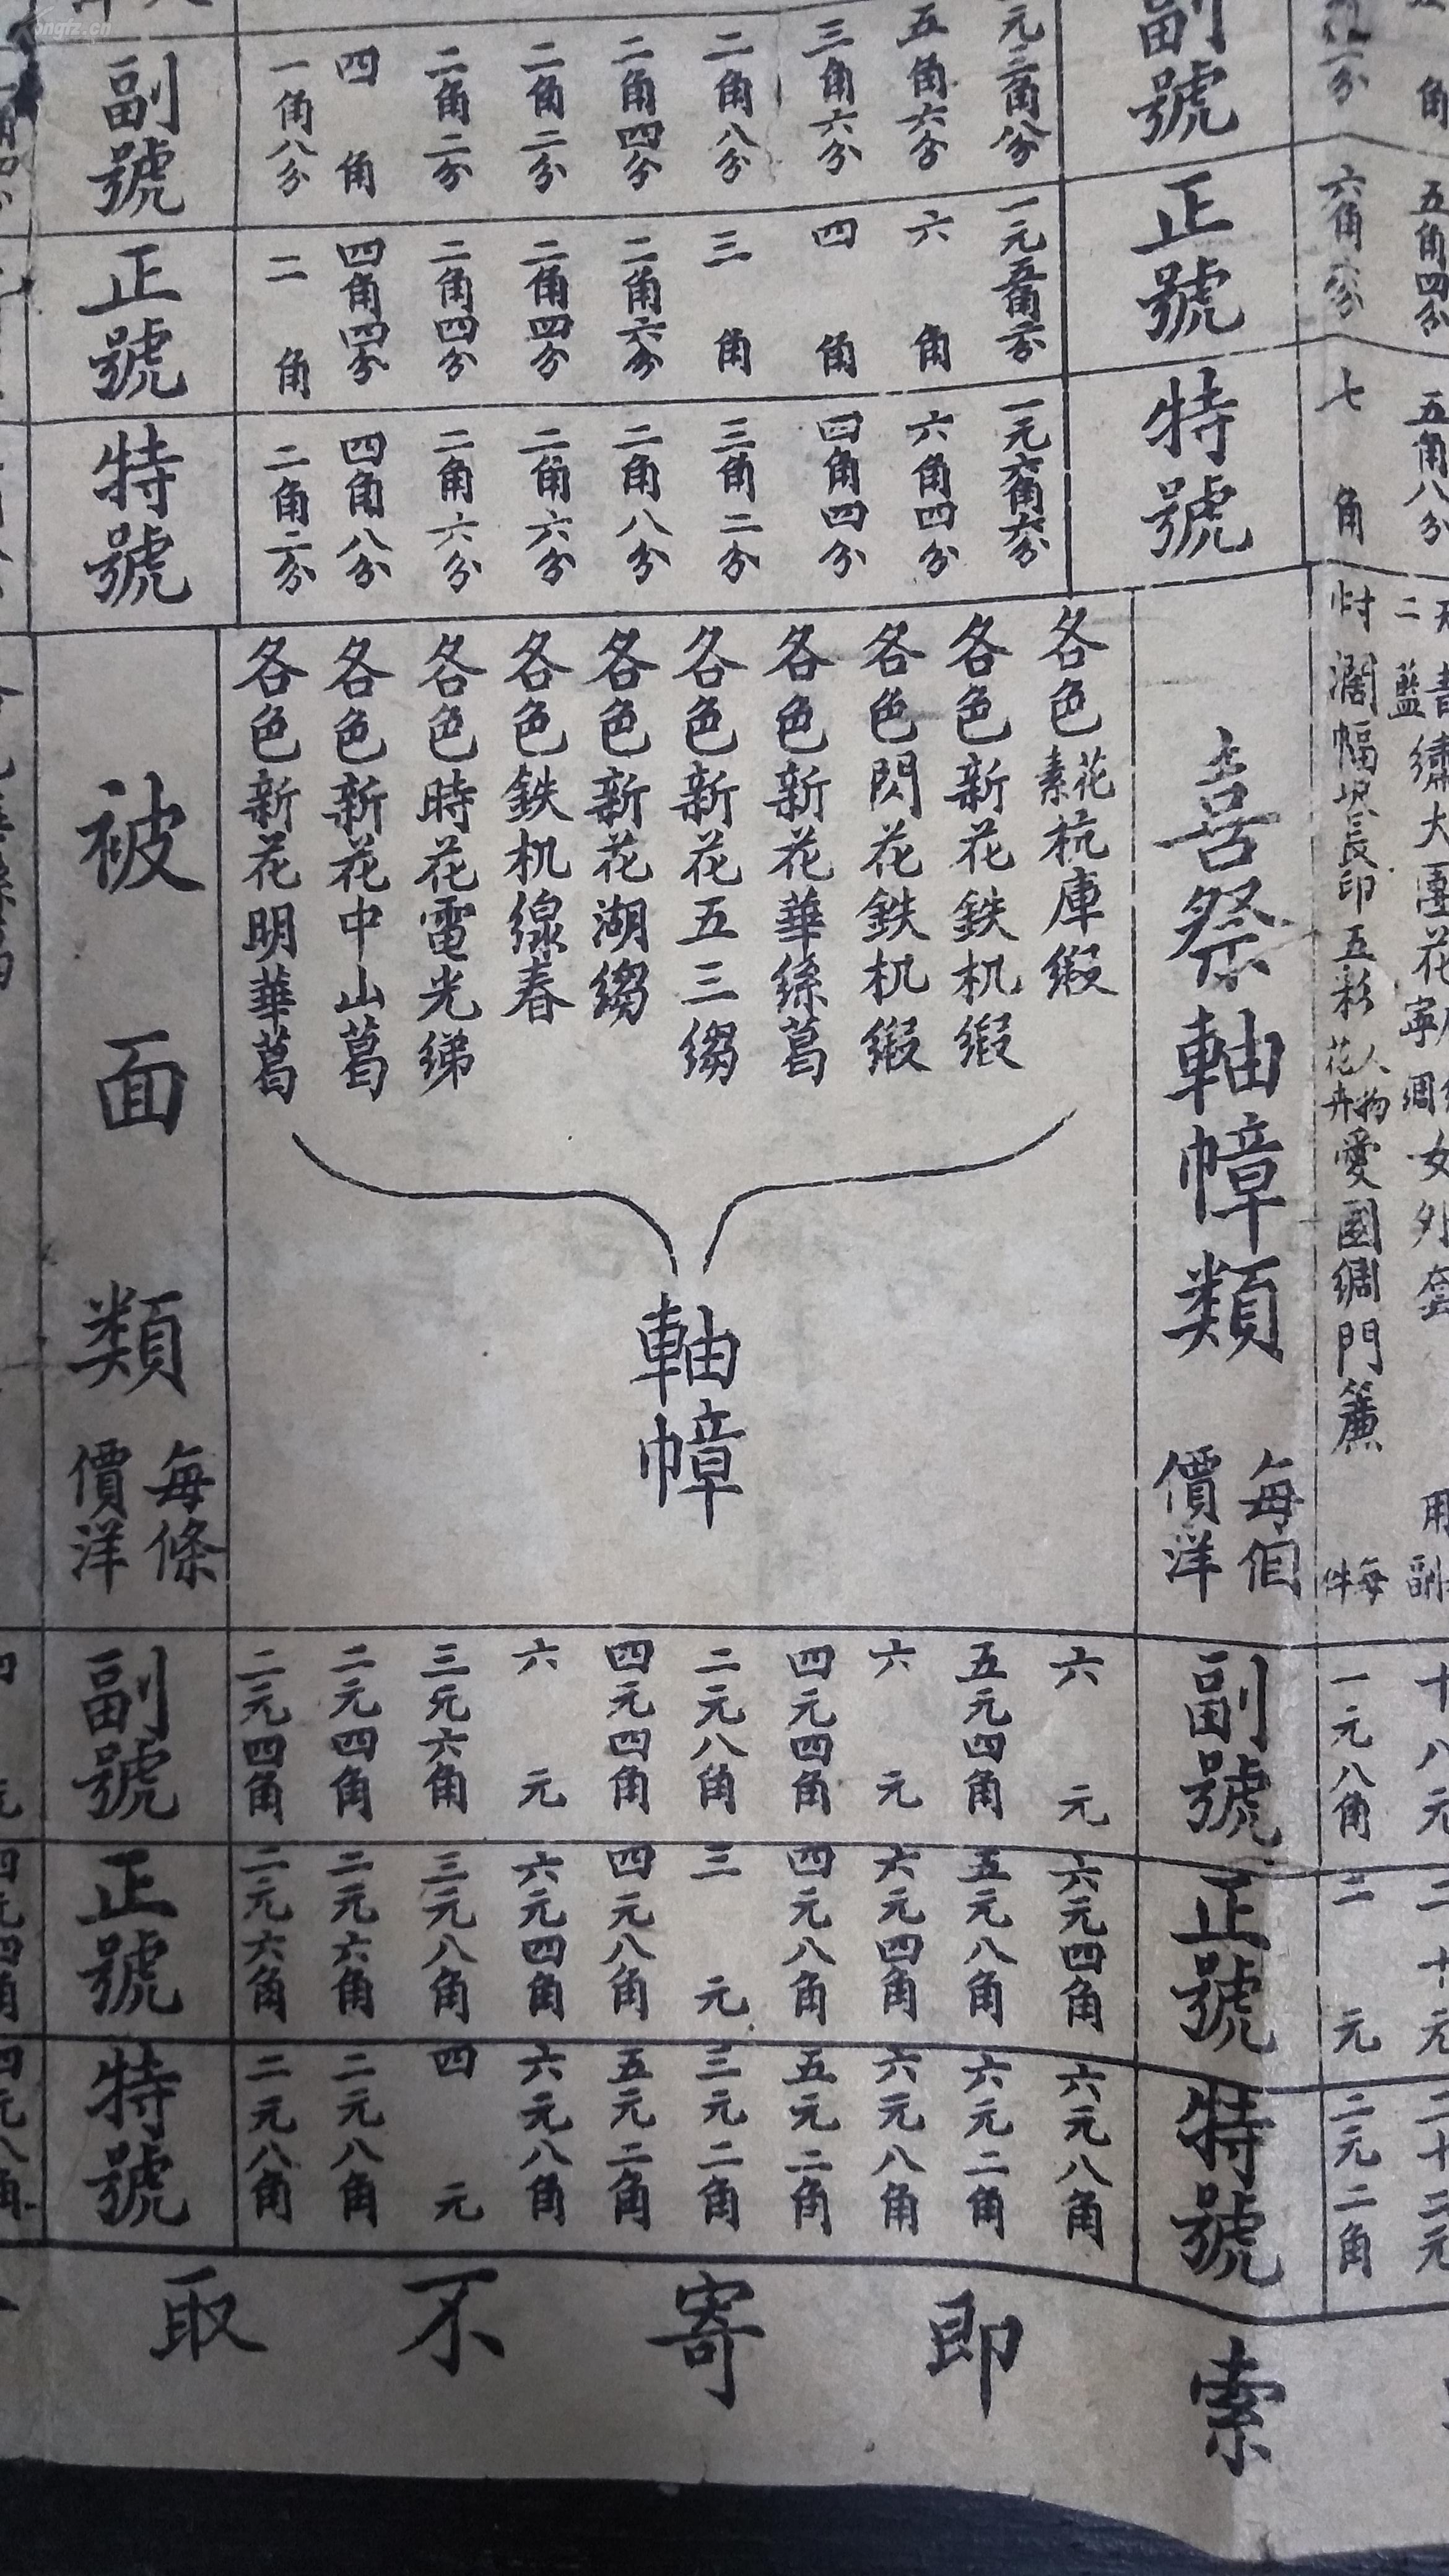 副號
正號
特號
五角四分
五角八分
六角六分
七角
一元五角二分
一元六角六分
五角六分
六角
六角四分
三角六分
四角
四角四分
二角八分
三角
三角二分
二角四分
二角六分
二角八分
二角二分
二角四分
二角六分
二角二分
二角四分
二角六分
四角
四角四分
四角八分
一角八分
二角
二角二分
副號
正號
特號
濶幅
長印五彩人物花卉愛國綢門簾 每件 一元八角 二元 二元二角
十八元 二十元 二十二元
喜祭軸幛類 每個價洋 副號 正號 特號
各色花素杭庫緞 六元 六元四角 六元八角
各色新花鉄机緞 五元四角 五元八角 六元二角
各色閃花鉄机緞 六元 六元四角 六元八角
各色新花華絲葛 四元四角 四元八角 五元二角
各色新花五三縐 二元八角 三元 三元二角
各色新花湖縐 四元四角 四元八角 五元二角
各色鉄机線春 六元 六元四角 六元八角
各色時花電光綈 三元六角 三元八角 四元
各色新花中山葛 二元四角 二元六角 二元八角
各色新花明華葛 二元四角 二元六角 二元八角
軸幛
被面類 每條價洋 副號 正號 特號
四元四角
四元八角
索即寄不取